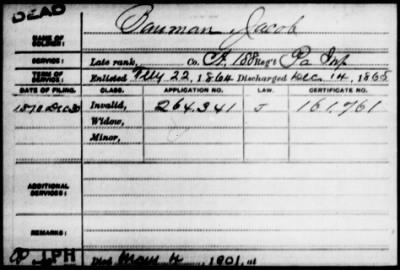 DEAD
NAME OF SOLDIER: Bauman, Jacob
SERVICE: Late rank, Co. A, 158 Reg't Pa Inf
TERM OF SERVICE: Enlisted 22, 1864 Discharged Dec. 14, 1865
DATE OF FILING. CLASS. APPLICATION NO. LAW. CERTIFICATE NO.
Invalid, 264.341 J 161.761
Widow,
Minor,
ADDITIONAL SERVICES:
REMARKS:
Died 4, 1901, at